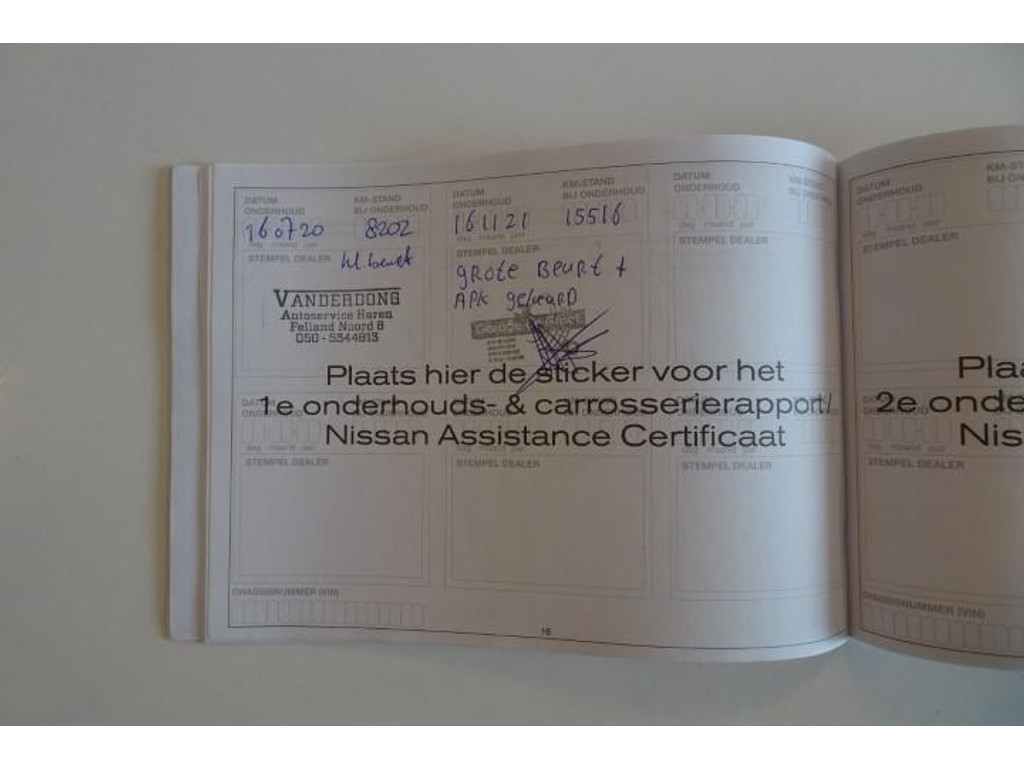 DATUM ONDERHOUD
KM-STAND BIJ ONDERHOUD
160720
8202
dag maand jaar
STEMPEL DEALER
kl. beurt
VANDERDONG
Autoservice Haren
Felland Noord 8
050 - 5344813
DATUM ONDERHOUD
KM-STAND BIJ ONDERHOUD
161121
15516
dag maand jaar
STEMPEL DEALER
GROTE BEURT +
APK gekeurd
Garage
DATUM ONDERHOUD
KM-STAND
STEMPEL DEALER
Plaats hier de sticker voor het
1e onderhouds- & carrosserierapport/
Nissan Assistance Certificaat
DATUM
ONDERHOUD
STEMPEL DEALER
STEMPEL DEALER
dag maand jaar
STEMPEL DEALER
CHASSISNUMMER (VIN)
16
DATUM
ONDERHOUD
KM-STAND
STEMPEL DEALER
Plaa
2e onde
Nis
STEMPEL DEALER
CHASSISNUMMER (VIN)